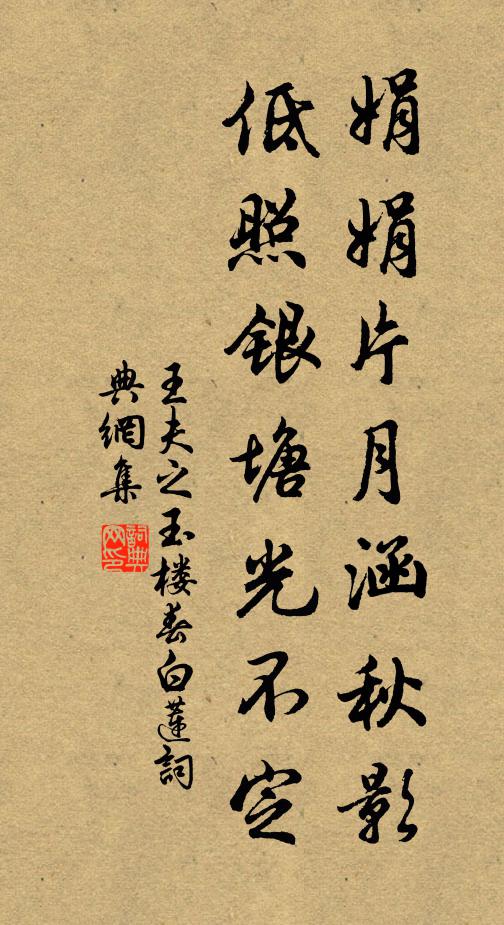 娟娟片月涵秋影
低照銀塘光不定
王夫之玉楼春白蓮詞
典網集
詞典网印